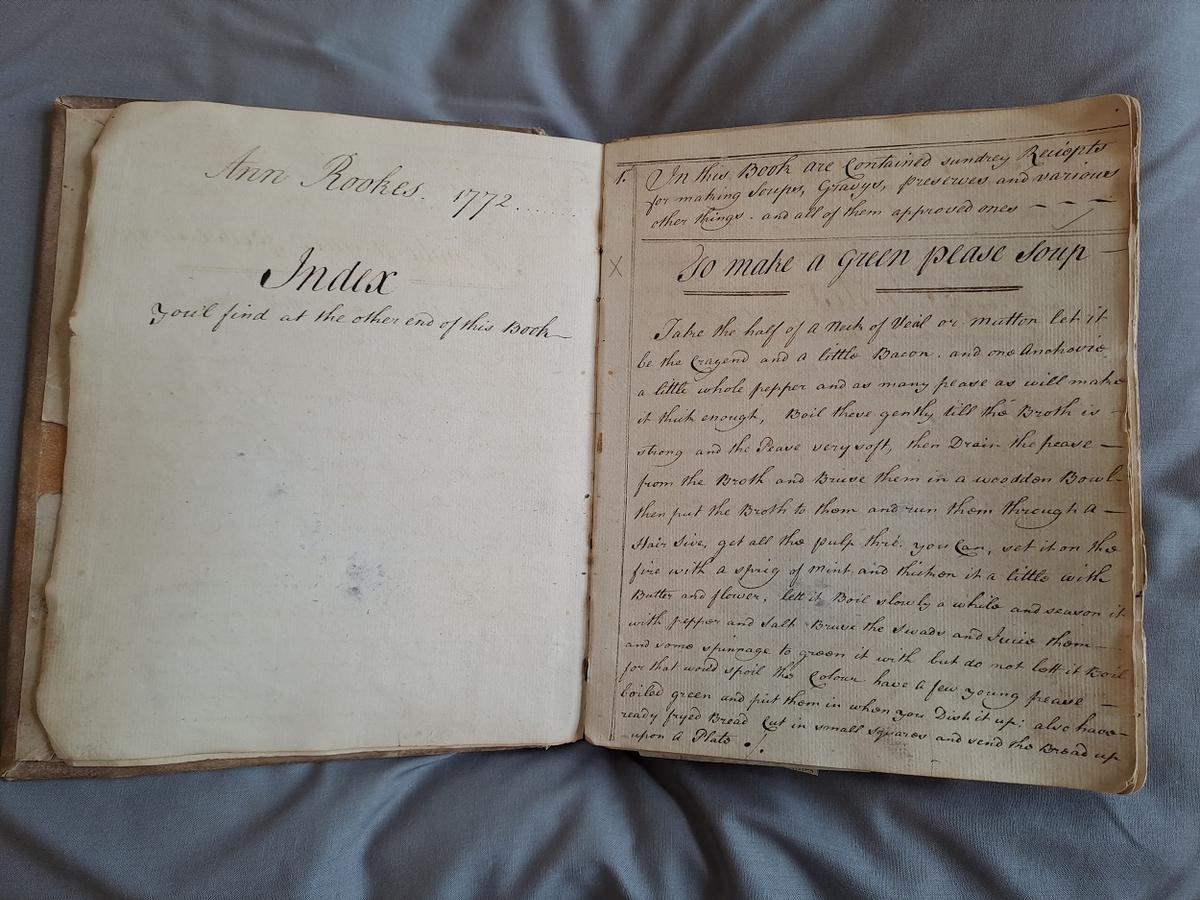 Ann Rookes. 1772.......
Index
You'l find at the other end of this Book
1.
In this Book are Contained sundrey Reciepts
for making Soups, Gravys, preserves and various
other things. and all of them approved ones — — —
X
To make a Green pease Soup
Take the half of a Neck of Veal or mutton let it
be the Cragend and a little Bacon. and one Anchovie
a little whole pepper and as many pease as will make
it thick enough, Boil these gently till the Broth is —
strong and the Pease very soft, then Drain the pease —
from the Broth and Bruise them in a woodden Bowl-
then put the Broth to them and run them through a —
Hair Sive, get all the pulp thro' you Can, set it on the
fire with a sprig of mint and thicken it a little with
Butter and flower, lett it Boil slowly a while and season it
with pepper and salt Bruse the Swads and Juice them —
and some spinnage to green it with but do not lett it Boil
for that would spoil the Colour have a few young pease —
boiled green and put them in when you Dish it up: also have —
ready fryed Bread Cut in small squares and send the Bread up
upon a Plate